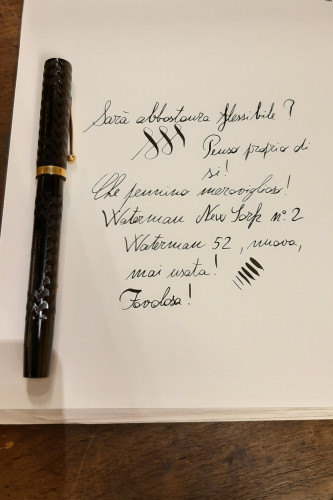 Sarà abbastanza flessibile ?
Penso proprio di
sì!
Che pennino meraviglioso!
Waterman New York n° 2
Waterman 52, nuova,
mai usata!
Favolosa!